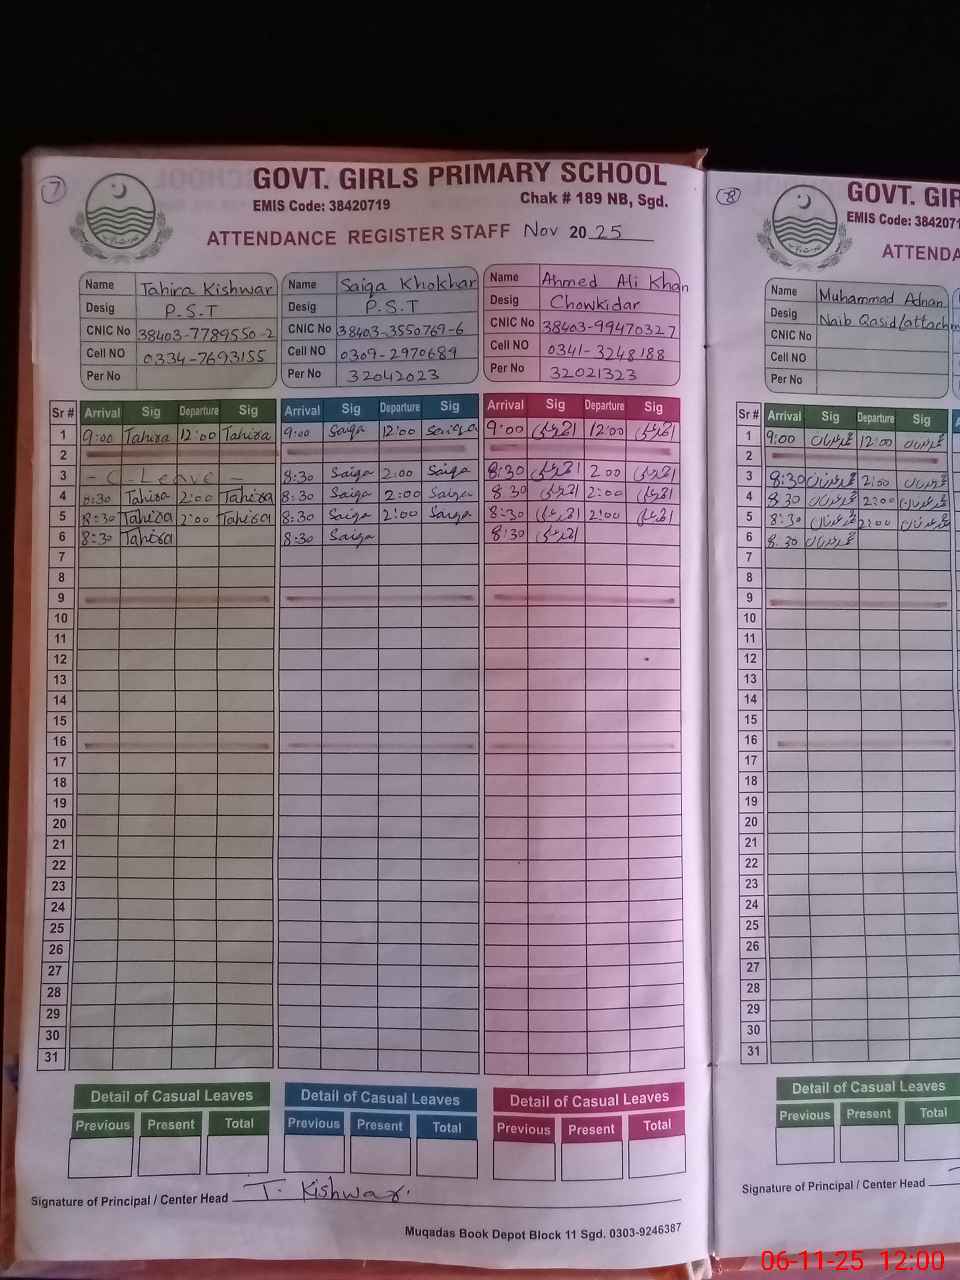 7
GOVT. GIRLS PRIMARY SCHOOL
EMIS Code: 38420719
Chak # 189 NB, Sgd.
ATTENDANCE REGISTER STAFF Nov 2025
Name Tahira Kishwar Name Saiqa Khokhar Name Ahmed Ali Khan
Desig P.S.T Desig P.S.T Desig Chowkidar
CNIC No 38403-7789550-2 CNIC No 38403-3550769-6 CNIC No 38403-99470327
Cell NO 0334-7693155 Cell NO 0309-2970689 Cell NO 0341-3248188
Per No Per No 32042023 Per No 32021323
Sr # Arrival Sig Departure Sig Arrival Sig Departure Sig Arrival Sig Departure Sig
1 9:00 Tahira 12:00 Tahira 9:00 Saiqa 12:00 Saiqa 9:00 12:00
2
3 - C-Leave - 8:30 Saiqa 2:00 Saiqa 8:30 2:00
4 8:30 Tahira 2:00 Tahira 8:30 Saiqa 2:00 Saiqa 8:30 2:00
5 8:30 Tahira 2:00 Tahira 8:30 Saiqa 2:00 Saiqa 8:30 2:00
6 8:30 Tahira 8:30 Saiqa 8:30
7
8
9
10
11
12
13
14
15
16
17
18
19
20
21
22
23
24
25
26
27
28
29
30
31
Detail of Casual Leaves Detail of Casual Leaves Detail of Casual Leaves
Previous Present Total Previous Present Total Previous Present Total
Signature of Principal / Center Head T. Kishwar.
Muqadas Book Depot Block 11 Sgd. 0303-9246387
8
GOVT. GIR
EMIS Code: 384207
ATTENDA
Name Muhammad Adnan
Desig Naib Qasid/attach
CNIC No
Cell NO
Per No
Sr # Arrival Sig Departure Sig
1 9:00 12:00
2
3 8:30 2:00
4 8:30 2:00
5 8:30 2:00
6 8:30
7
8
9
10
11
12
13
14
15
16
17
18
19
20
21
22
23
24
25
26
27
28
29
30
31
Detail of Casual Leaves
Previous Present Total
Signature of Principal / Center Head
06-11-25 12:00